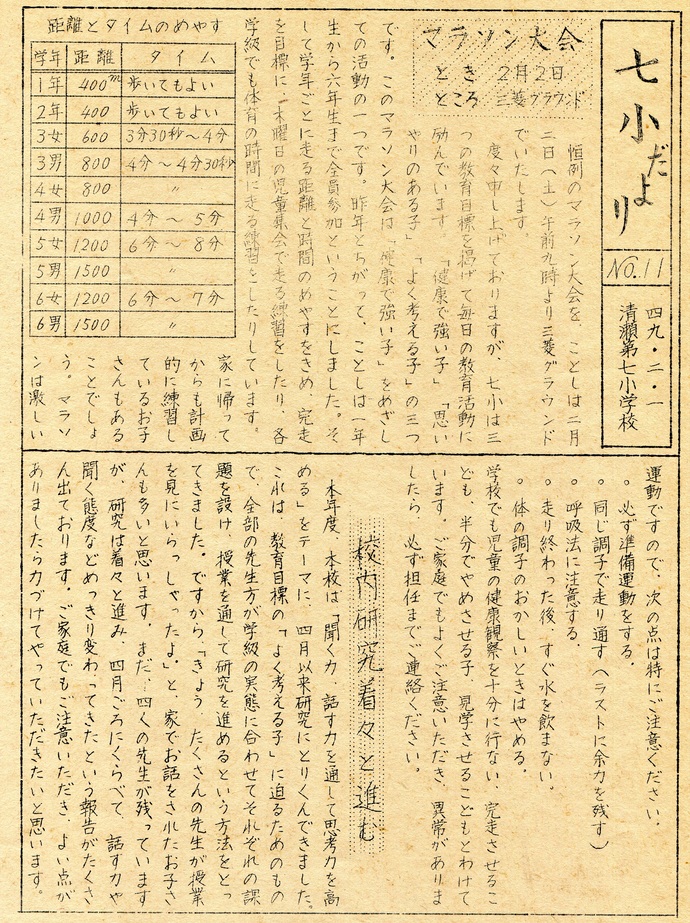 七小だより
NO.11
四九・二・一
清瀬第七小学校
マラソン大会
とき 2月2日
ところ 三菱グラウンド
恒例のマラソン大会を、ことしは二月
二日(土)午前九時より三菱グラウンド
でいたします。
度々申し上げておりますが、七小は三
つの教育目標を掲げて毎日の教育活動に
励んでいます。「健康で強い子」「思い
やりのある子」「よく考える子」の三つ
です。このマラソン大会は「健康で強い子」をめざし
ての活動の一つです。昨年とちがって、ことしは一年
生から六年生まで全員参加ということにしました。そ
して学年ごとに走る距離と時間のめやすをきめ、完走
を目標に、木曜日の児童集会で走る練習をしたり、各
学級でも体育の時間に走る練習をしたりしています。
距離とタイムのめやす
学年 距離 タイム
1年 400m 歩いてもよい
2年 400 歩いてもよい
3女 600 3分30秒〜4分
3男 800 4分〜4分30秒
4女 800 〃
4男 1000 4分〜5分
5女 1200 6分〜8分
5男 1500 〃
6女 1200 6分〜7分
6男 1500 〃
家に帰って
からも計画
的に練習し
ているお子
さんもある
ことでしょ
う。マラソ
ンは激しい
運動ですので、次の点は特にご注意ください。
。必ず準備運動をする。
。同じ調子で走り通す(ラストに余力を残す)
。呼吸法に注意する。
。走り終わった後、すぐ水を飲まない。
。体の調子のおかしいときはやめる。
学校でも児童の健康観察を十分に行ない、完走させるこ
ども、半分でやめさせる子、見学させるこどもとわけて
います。ご家庭でもよくご注意いただき、異常がありま
したら、必ず担任までご連絡ください。
校内研究着々と進む
本年度、本校は「聞く力、話す力を通して思考力を高
める」をテーマに、四月以来研究にとりくんできました。
これは、教育目標の「よく考える子」に迫るためのもの
で、全部の先生方が学級の実態に合わせてそれぞれの課
題を設け、授業を通して研究を進めるという方法をとっ
てきました。ですから、「きょう、たくさんの先生が授業
を見にいらっしゃったよ。」と、家でお話をされたお子さ
んも多いと思います。まだ、四くの先生が残っています
が、研究は着々と進み、四月ごろにくらべて、話す力や
聞く態度などめっきり変わってきたという報告がたくさ
ん出ております。ご家庭でもご注意いただき、よい点が
ありましたら力づけてやっていただきたいと思います。